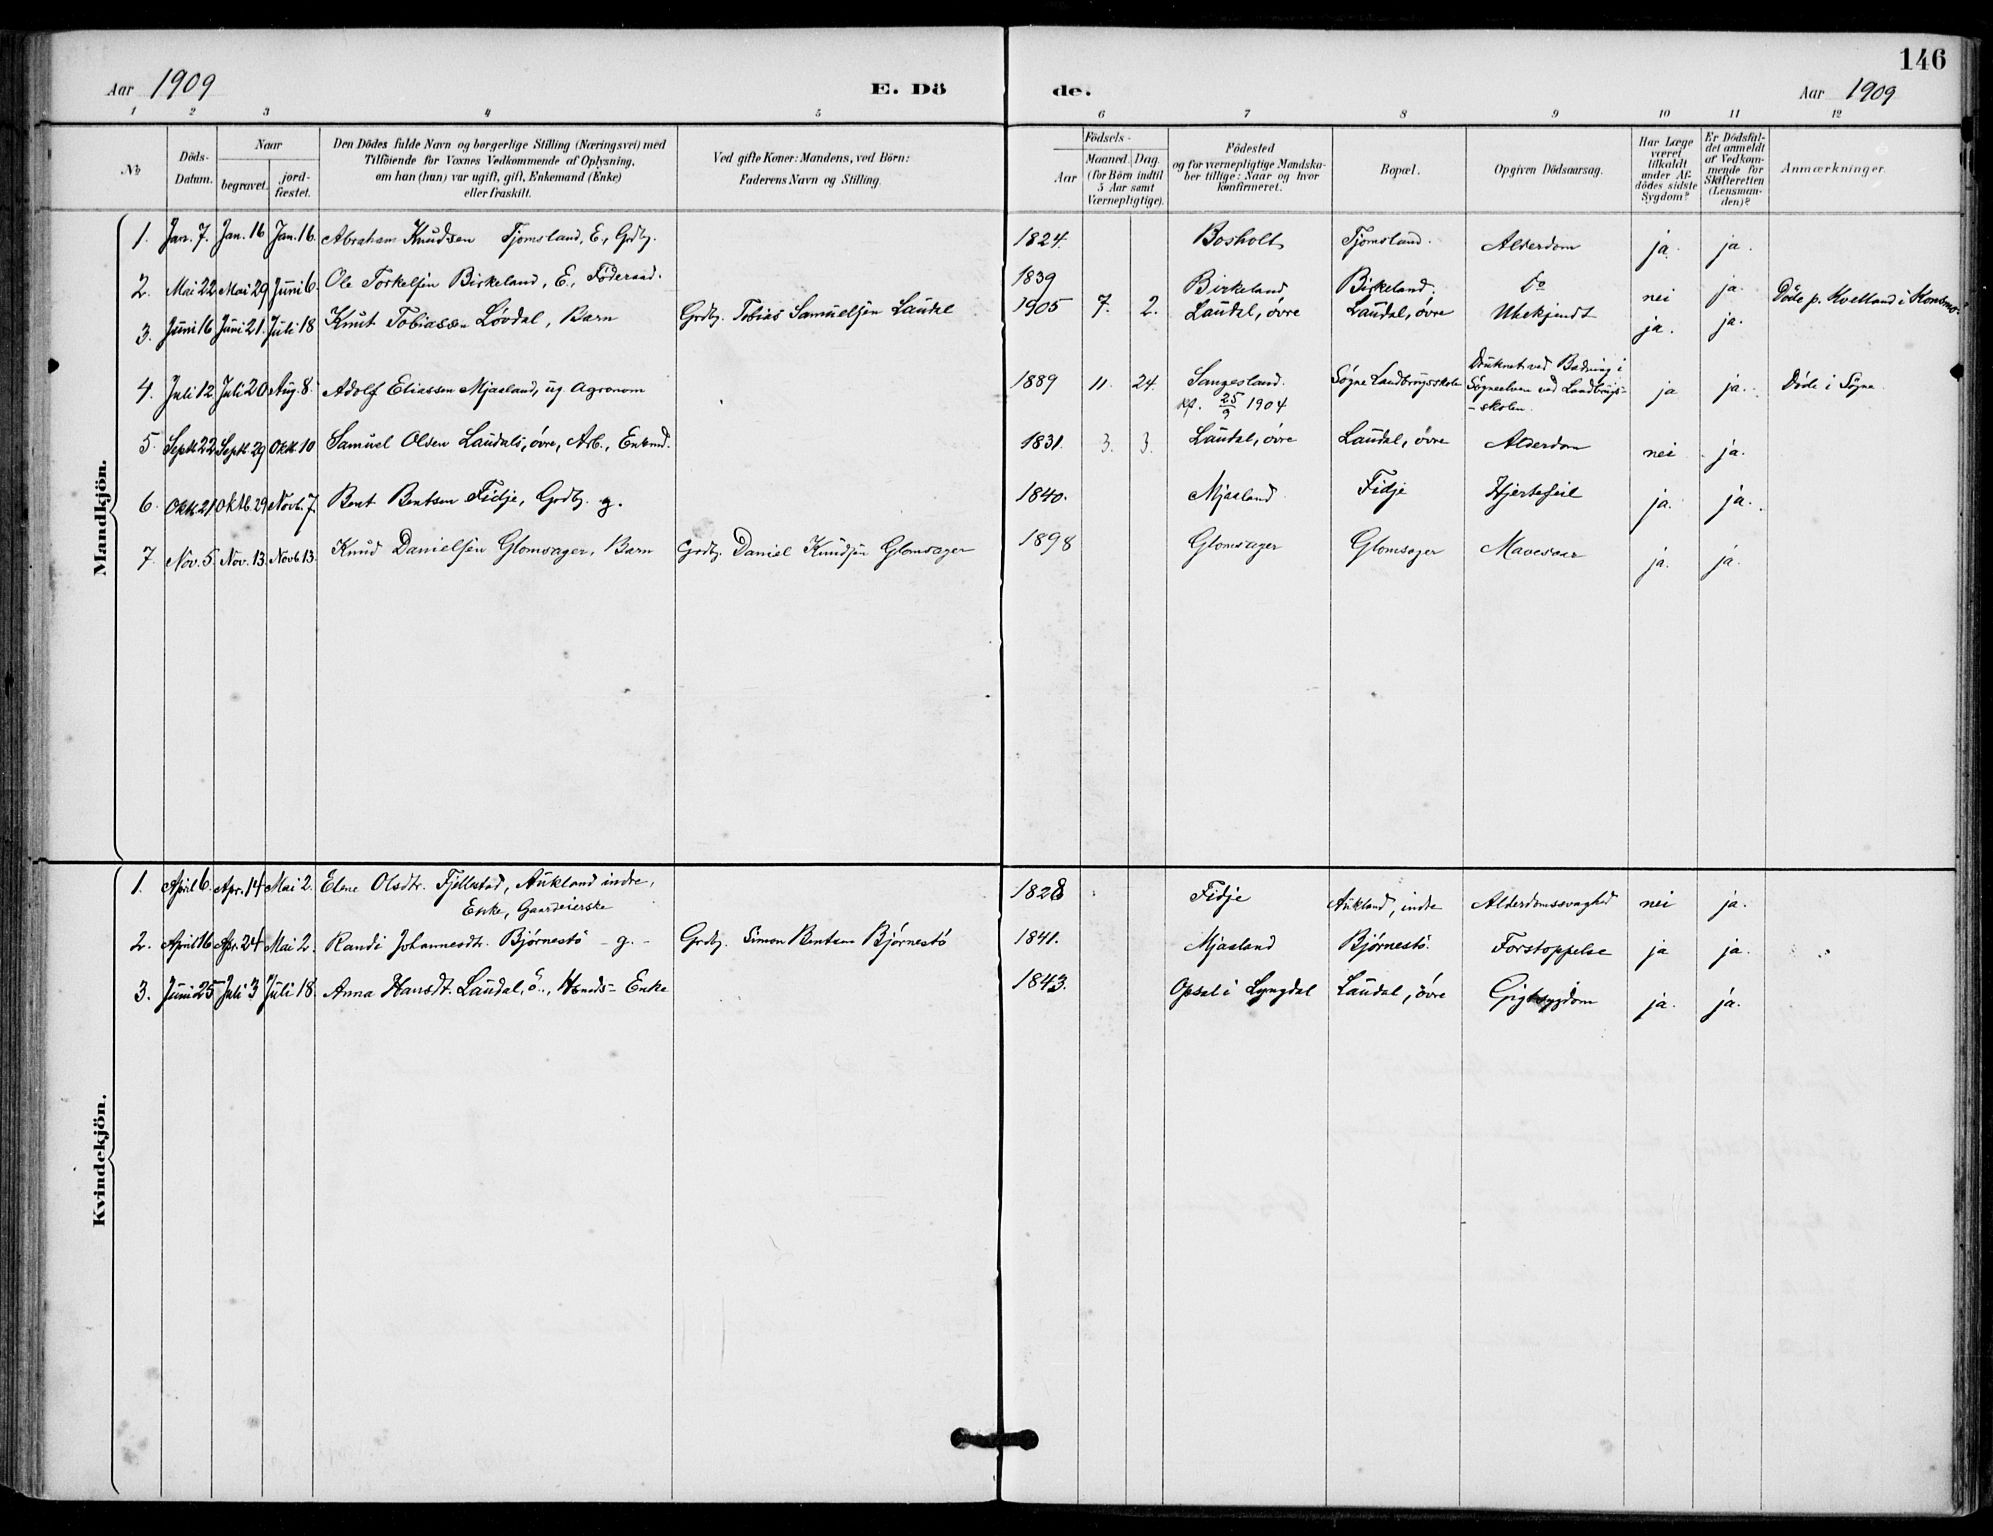 146
Aar 1909 E. Dö de. Aar 1909
1 2 3 4 5 6 7 8 9 10 11 12
No
Döds-Datum.
Naar
begravet.
jord-fæstet.
Den Dödes fulde Navn og borgerlige Stilling (Næringsvei) med
Tilföiende for Voxnes Vedkommende af Oplysning,
om han (hun) var ugift, gift, Enkemand (Enke)
eller fraskilt.
Ved gifte Koner: Mandens, ved Börn:
Faderens Navn og Stilling.
Födsels-
Aar
Maaned. Dag.
(for Börn indtil
5 Aar samt
Værnepligtige).
Födested
og for værnepligtige Mandska-
ber tillige: Naar og hvor
konfirmeret.
Bopæl.
Opgiven Dödsaarsag.
Har Læge
været
tilkaldt
under Af-
dödes sidste
Sygdom?
Er Dödsfal-
det anmeldt
af Vedkom-
mende for
Skifteretten
(Lensman-
den)?
Anmærkninger.
Mandkjön.
1. Jan. 7. Jan. 16 Jan. 16. Abraham Knudsen Tjomsland, E., Grdbg. 1824. Bosholt Tjomsland. Alderdom ja. ja.
2. Mai 22 Mai 29 Juni 6. Ole Torkelsen Birkeland, E., Föderaad. 1839 Birkeland Birkeland. Do nei ja. Döde p. Kvelland i Konsmo.
3. Juni 16 Juni 21. Juli 18 Knut Tobiassen Løvdal, Barn Grdbg. Tobias Samuelsen Laudal 1905 7. 2. Laudal, øvre Laudal, øvre Ubekjendt ja. ja.
4. Juli 12 Juli 20 Aug. 8. Adolf Eliassen Mjaaland, ug. Agronom 1889 11. 24. Sangesland. Kf. 25/9 1904 Søgne Landbrugsskole Druknet ved Badning i
Søgneelven ved Landbrugs-
-skolen. ja ja. Döde i Søgne.
5 Septb. 22 Septb. 29 Oktb. 10 Samuel Olsen Laudal, øvre, Arb., Enkmd. 1831. 3. 3. Laudal, øvre Laudal, øvre Alderdom nei ja.
6. Oktb. 21 Oktb. 29 Novb. 7. Bent Bentsen Fidje, Grdbg. g. 1840. Mjaaland Fidje Hjertefeil ja. ja.
7. Nov. 5. Nov. 13. Novb. 13. Knud Danielsen Glomsager, Barn Grdbg. Daniel Knudsen Glomsager 1898 Glomsager Glomsager Mavesaar ja. ja.
Kvindekjön.
1. April 6. Apr. 14 Mai 2. Elene Olsdtr. Fjellestad, Aukland indre,
Enke, Gaardeierske 1828 Fidje Aukland, indre Alderdomssvaghed nei ja.
2. April 16 Apr. 24 Mai 2. Randi Johannesdtr. Bjørnestö - g. - Grdbg. Simon Bentsen Bjørnestö 1841. Mjaaland Bjørnestö. Forstoppelse ja ja.
3. Juni 25 Juli 3 Juli 18. Anna Hansdt. Laudal, ö., Hsmds- Enke 1843. Opsal i Lyngdal Laudal, øvre Gigtsygdom ja. ja.